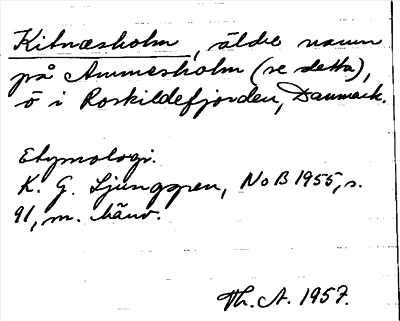 Kitnæsholm, äldre namn
på Ammesholm (se detta),
ö i Roskildefjorden, Danmark.
Etymologi.
K. G. Ljunggren, NoB 1955, s.
91, m. hänv.
Th. A. 1957.